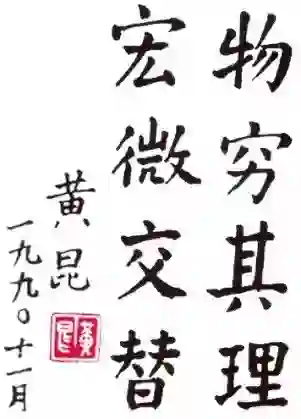 物穷其理
宏微交替
黄昆
一九九〇十一月
黄昆